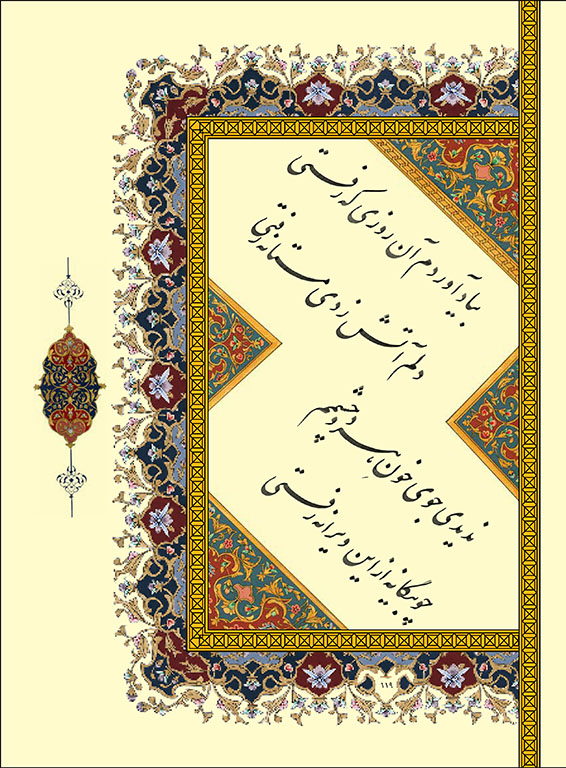 بیاد آوردم آن روزی که رفتی
دلم آتش زدی مستانه رفتی
ندیدی جوی خونِ هر دو چشمم
چو بیگانه از این ویرانه رفتی
۱۱۹